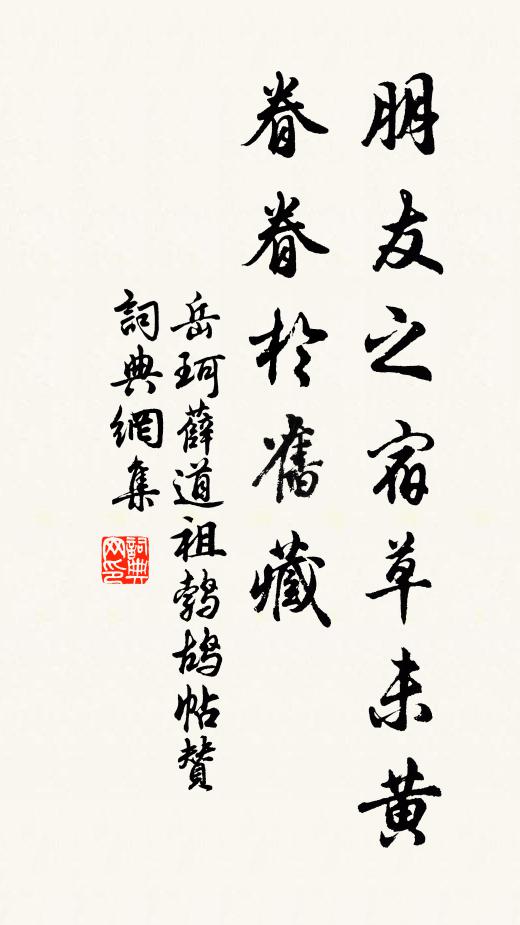 朋友之宿草未黄
眷眷於舊藏
岳珂薛道祖鹁鴣帖贊
詞典網集
詞典网印